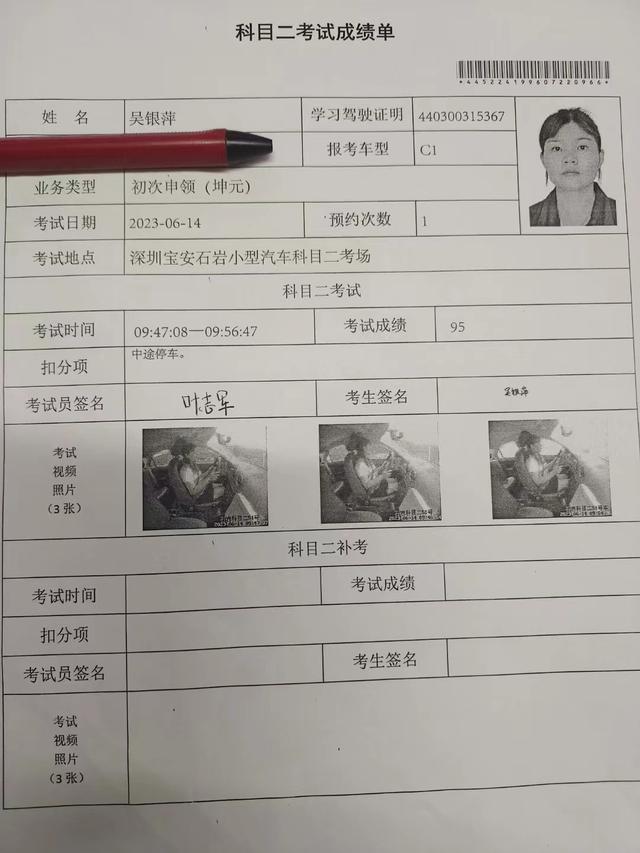 科目二考试成绩单
*445224199607220966*
姓 名 吴银萍 学习驾驶证明 440300315367
报考车型 C1
业务类型 初次申领（坤元）
考试日期 2023-06-14 预约次数 1
考试地点 深圳宝安石岩小型汽车科目二考场
科目二考试
考试时间 09:47:08—09:56:47 考试成绩 95
扣分项 中途停车。
考试员签名 叶志军 考生签名 吴银萍
考试
视频
照片
（3 张）
科目二补考
考试时间 考试成绩
扣分项
考试员签名 考生签名
考试
视频
照片
（3 张）